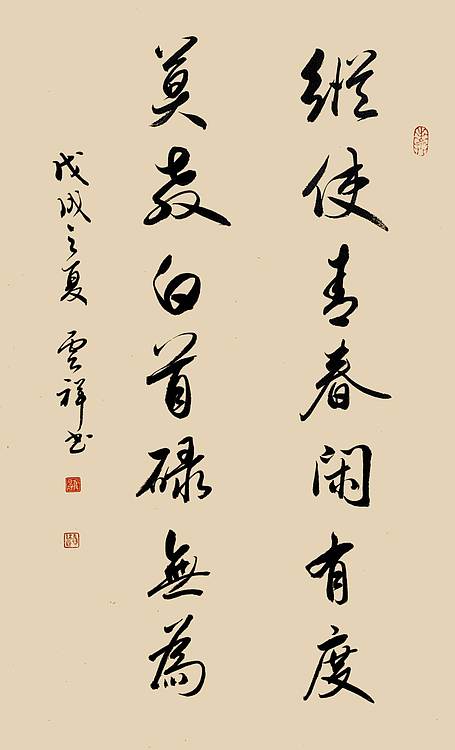 縱使青春閑有度
莫教白首碌無為
戊戌之夏 雲祥書